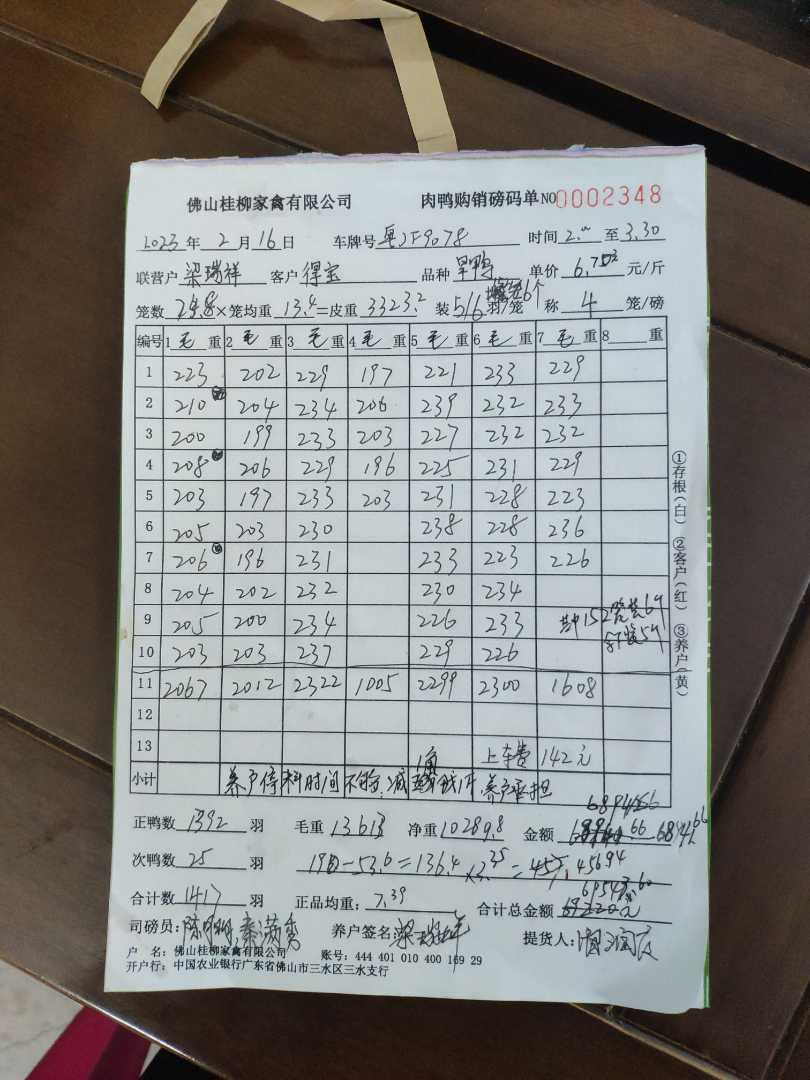 佛山桂柳家禽有限公司 肉鸭购销磅码单 NO 0002348
2023年 2月 16日 车牌号 粤JF9078 时间 2.00 至 3.30
联营户 梁瑞祥 客户 得宝 品种 旱鸭 单价 6.70 元/斤
笼数 248 ×笼均重 13.4 =皮重 3323.2 装 5/6 羽/笼 称 4 笼/磅
编号 1 毛 重 2 毛 重 3 毛 重 4 毛 重 5 毛 重 6 毛 重 7 毛 重 8 重
1 223 202 229 197 221 233 229
2 210 204 234 206 239 232 233
3 200 199 233 203 227 232 232
4 208 206 229 196 225 231 229
5 203 197 233 203 231 228 223
6 205 203 230 238 228 236
7 206 196 231 233 223 226
8 204 202 232 230 234
9 205 200 234 226 233 其中152笼装6只
10 203 203 237 229 226 余下装5只
11 2067 2012 2322 1005 2299 2300 1608
12
13 上车费 142元
小计 养户停料时间不够,减 1角 钱1斤 养户承担
正鸭数 1392 羽 毛重 13613 净重 10289.8 金额 68942.66
次鸭数 25 羽 190-53.6=136.4
合计数 1417 羽 正品均重: 7.39 合计总金额
司磅员: 秦满秀 养户签名: 梁瑞祥 提货人:
户 名: 佛山桂柳家禽有限公司 账号: 444 401 010 400 169 29
开户行: 中国农业银行广东省佛山市三水区三水支行
①存根(白) ②客户(红) ③养户(黄)